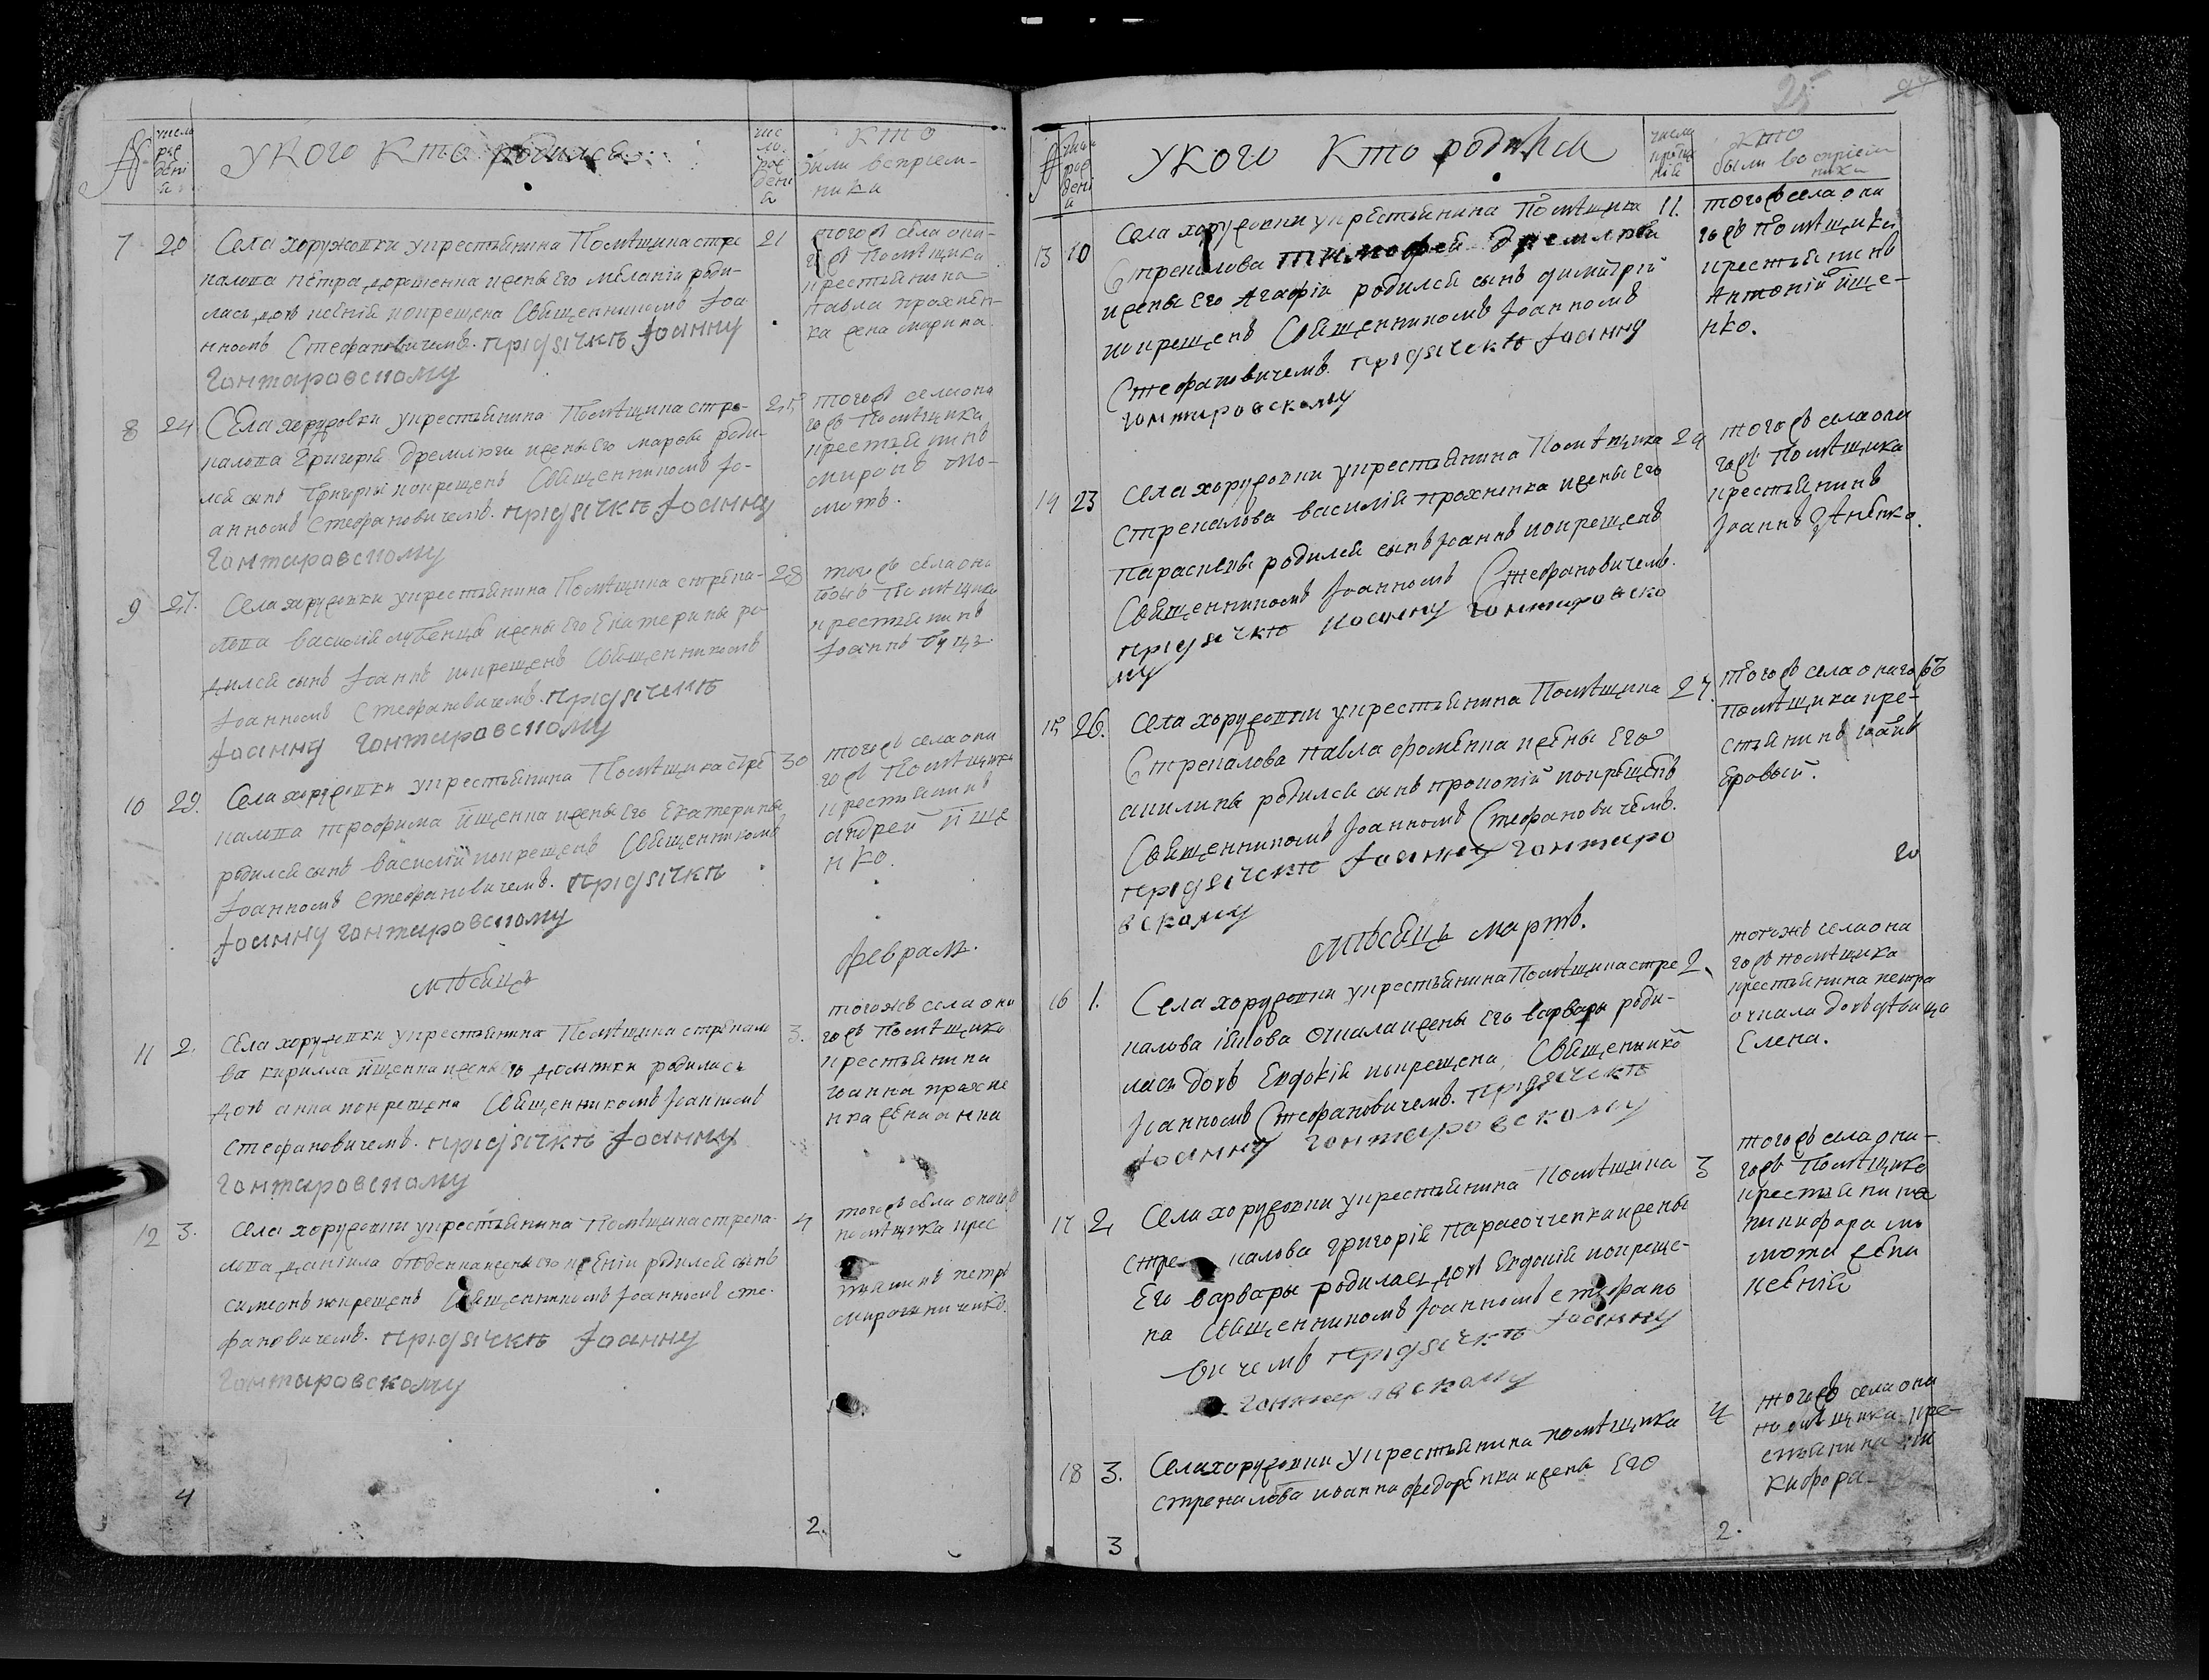 №
число рождения
У кого кто родился
число рождения
кто были восприемники
7 20 Села хоружовки у крестьянина Помѣщика стре 21
калова петра доршенка жены его меланіи роди-
лась дочь ксенія покрещена Священникомъ Іоа
нномъ Стефановичемъ. при дячкѣ Іоанну
Гонтаровскому
тогожъ села она-
гожъ Помѣщика
крестьянина
павла прахнен-
ка жена марина
8 24 Села хоружовки у крестьянина Помѣщика стре- 25
калова Григорія Дремлюги жены его марфы роди-
лся сынъ Григорій покрещенъ Священникомъ Іо-
анномъ Стефановичемъ. при дячкѣ Іоанну
Гонтаровскому
тогожъ села она
гожъ Помѣщика
крестьянинъ
миронъ
9 27. Села хоружовки у крестьянина Помѣщика стрека- 28
лова василія жены его Екатерины ро
дился сынъ Іоаннъ покрещенъ Священникомъ
Іоанномъ Стефановичемъ. при дячкѣ
Іоанну Гонтаровскому
тогожъ села она
гожъ Помѣщика
крестьянинъ
Іоаннъ
10 29. Села хоружовки у крестьянина Помѣщика стре 30
калова трофима ищенка жены его Екатерины
родился сынъ василій покрещенъ Священникомъ
Іоанномъ Стефановичемъ. при дячкѣ
Іоанну Гонтаровскому
тогожъ села она
гожъ Помѣщика
крестьянинъ
андрей ище
нко.
мѣсяцъ февраль.
11 2. Села хоружовки у крестьянина Помѣщика стрекало 3.
ва кирилла ищенка жены его домники родилась
дочь анна покрещена Священникомъ Іоанномъ
Стефановичемъ. при дячкѣ Іоанну
Гонтаровскому
тогожъ села она
гожъ Помѣщика
крестьянина
іоанна прахне
нка жена анна
12 3. Села хоружовки у крестьянина Помѣщика стрека- 4
лова даніила жены его ксеніи родился сынъ
симеонъ покрещенъ Священникомъ Іоанномъ сте-
фановичемъ. при дячкѣ Іоанну
Гонтаровскому
тогожъ села онагожъ
помѣщика крес
тянинъ петръ
4
2.
25
№
У кого Кто родился
кто были восприемники
13 10 Села хоружовки у крестьянина Помѣщика 11.
Стрекалова тимофея дремлюги
жены его Агафіи родился сынъ димитрій
покрещенъ Священникомъ Іоанномъ
Стефановичемъ. при дячкѣ Іоанну
Гонтаровскому
тогожъ села она
гожъ Помѣщика
крестьянинъ
Антоній ище-
нко.
14 23 Села хоружовки у крестьянина Помѣщика 24
Стрекалова василія прахненка жены его
Параскевы родился сынъ Іоаннъ покрещенъ
Священникомъ Іоанномъ Стефановичемъ.
при дячкѣ Иоанну Гонтаровско
му
тогожъ села она
гожъ Помѣщика
крестьянинъ
Іоаннъ
15 26. Села хоружовки у крестьянина Помѣщика 27.
Стрекалова павла фоменка жены его
акилины родился сынъ прокопій покрещенъ
Священникомъ Іоанномъ Стефановичемъ.
при дячкѣ Іоанну Гонтаро
вскому
тогожъ села онагожъ
помѣщика кре-
стьянинъ
мѣсяцъ мартъ.
16 1. Села хоружовки у крестьянина Помѣщика стре 2.
калова жены его варвары роди-
лась дочь Евдокія покрещена Священнико
Іоанномъ Стефановичемъ. при дячкѣ
Іоанну Гонтаровскому
тогожъ села она
гожъ помѣщика
крестьянина петра
дочь дѣвица
Елена.
17 2 Села хоружовки у крестьянина Помѣщика 3
стрекалова григорія жены
Его варвары родилась дочь Евдокія покреще-
на Священникомъ Іоанномъ стефано
вичемъ при дячкѣ Іоанну
Гонтаровскому
тогожъ села она-
гожъ Помѣщика
крестьянина
никифора
жена
ксенія
18 3. Села хоружовки у крестьянина помѣщика 4
стрекалова иоанна федоренка жены Его
тогожъ села она
помѣщика кре-
стьянина ни
кифора
3
2.